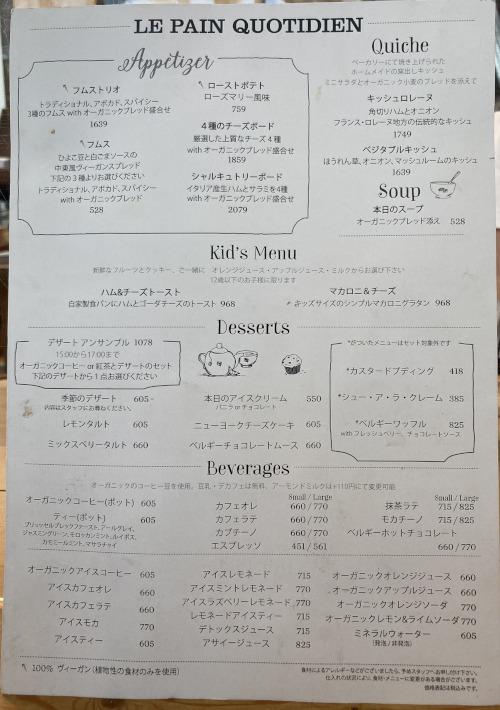 LE PAIN QUOTIDIEN
Appétizer
フムストリオ
トラディショナル, アボカド, スパイシー
3種のフムス with オーガニックブレッド盛合せ
1639
フムス
ひよこ豆と白ごまソースの
中東風ヴィーガンスブレッド
下記の3種よりお選びください
トラディショナル, アボカド, スパイシー
with オーガニックブレッド
528
ローストポテト
ローズマリー風味
759
4種のチーズボード
厳選した上質なチーズ4種
with オーガニックブレッド盛合せ
1859
シャルキュトリーボード
イタリア産生ハムとサラミを4種
with オーガニックブレッド
2079
Quiche
ベーカリーにて焼き上げられた
ホームメイドの窯出しキッシュ
ミニサラダとオーガニック小麦のブレッドを添えて
キッシュロレーヌ
角切りハムとオニオン
フランス・ロレーヌ地方の伝統的なキッシュ
1749
ベジタブルキッシュ
ほうれん草, オニオン, マッシュルームのキッシュ
1639
Soup
本日のスープ
オーガニックブレッド添え 528
Kid's Menu
新鮮なフルーツとクッキー、ご一緒に オレンジジュース・アップルジュース・ミルクからお選び下さい
12歳以下のお子様に限ります
ハム&チーズトースト
自家製食パンにハムとゴーダチーズのトースト 968
マカロニ&チーズ
キッズサイズのシンプルマカロニグラタン 968
Desserts
デザート アンサンブル 1078
15:00から17:00まで
オーガニックコーヒー or 紅茶とデザートのセット
下記のデザートから1点お選びください
季節のデザート 605
内容はスタッフにお尋ねください。
レモンタルト 605
ミックスベリータルト 660
本日のアイスクリーム 550
バニラ or チョコレート
ニューヨークチーズケーキ 605
ベルギーチョコレートムース 660
*がついたメニューはセット対象外です
*カスタードプディング 418
*シュー・ア・ラ・クレーム 385
*ベルギーワッフル 825
with フレッシュベリー, チョコレートソース
Beverages
オーガニックのコーヒー豆を使用。豆乳・デカフェは無料、アーモンドミルクは+110円にて変更可能
オーガニックコーヒー(ポット) 605
ティー(ポット) 605
ブリュッセルブレックファースト, アールグレイ,
ジャスミングリーン, モロッカンミント, ルイボス,
カモミールミント, マサラチャイ
Small / Large
カフェオレ 660 / 770
カフェラテ 660 / 770
カプチーノ 660 / 770
エスプレッソ 451 / 561
Small / Large
抹茶ラテ 715 / 825
モカチーノ 715 / 825
ベルギーホットチョコレート
660 / 770
オーガニックアイスコーヒー 605
アイスカフェオレ 660
アイスカフェラテ 660
アイスモカ 770
アイスティー 605
アイスレモネード 715
アイスミントレモネード 770
アイスラズベリーレモネード 770
レモネードアイスティー 715
デトックスジュース 715
アサイージュース 825
オーガニックオレンジジュース 660
オーガニックアップルジュース 660
オーガニックオレンジソーダ 770
オーガニックレモン&ライムソーダ 770
ミネラルウォーター 605
(発泡 / 非発泡)
100% ヴィーガン (植物性の食材のみを使用)
食材によるアレルギーなどがございましたら、予めスタッフへお申し付け下さい。
仕入れの状況により、食材・メニューに変更がある場合がございます。
価格表記は税込みです。